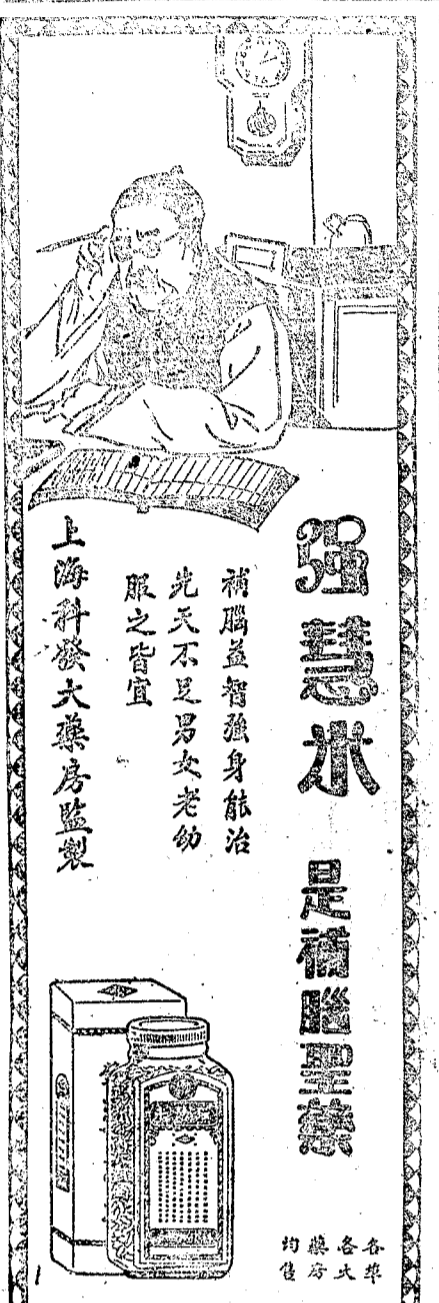 强慧水 是補腦聖藥
補腦益智強身能治
先天不足男女老幼
服之皆宜
上海科發大藥房監製
各埠
各大
藥房
均售